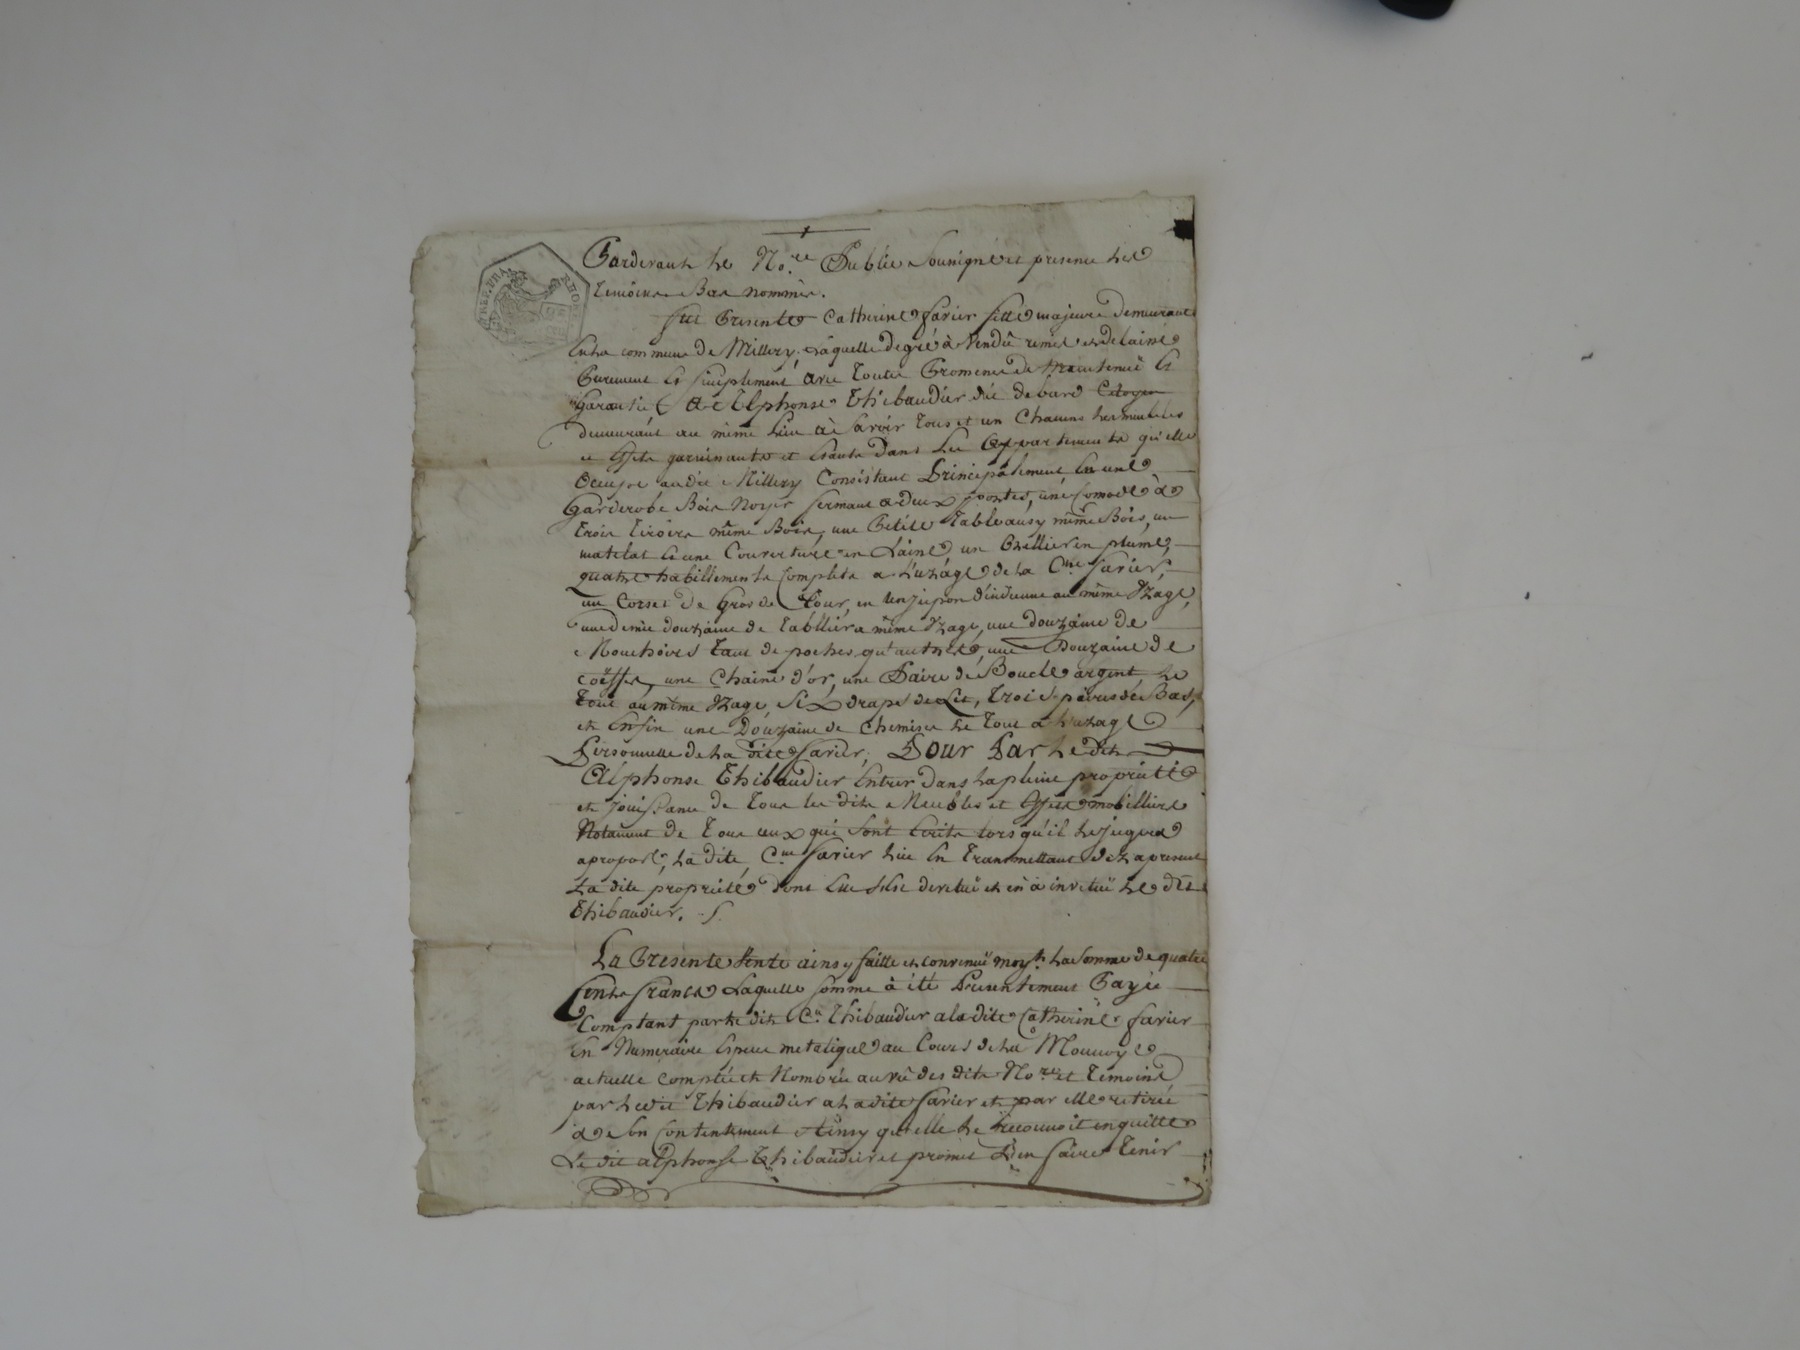 Pardevant Le No.re Public Sousigné et presence Les
Temoins Bas nommés.
fut Presente Catherine farier fille majeure demeurant
En La commune de Millery, Laquelle de gré à Vendû remis et delaissé
Purement Et simplement avec Toutes Promenes de Maintenüe Et
Garantie Alphonse Thibaudier dit debard Citoyen
demeurant au même Lieu à Savoir Tous et un Chacuns Les meubles
et Effets garnissants et Etants Dans Les Appartements qu'elle
Occupe audit Millery Consistant Principalement En une
Garderobe Bois Noyer fermant a deux portes, une Comode à
Trois Tiroirs même Bois, une Petite Tableausy même Bois, un
matelat Et une Couverture en Laine un Orellier en plume,
quatre habillements Complets a L'uzage de La C.ne farier,
un Corset de Gros de Tour, en un Jupon d'indienne au même Uzage,
une demie douzaine de Tablliers même Uzage, une douzaine de
Mouchoirs tant de poches qu'autres, une Douzaine de
coëffes, une Chaine d'or, une Paire de Boucle argent, Le
Tout au même Uzage, Six draps de Lit, Trois paires de Bas,
et Enfin une Douzaine de Chemises Le Tout a L'uzage
Personnelle de La dite farier, Pour Par Le dit
Alphonse Thibaudier Entrer Dans La pleine proprieté
et jouissance de Tous Les dits Meubles et Effets mobilliers
Notament de Tous ceux qui Sont Ecrits Lors qu'il Le jugera
apropos, La dite C.ne farier Lui En Transmettant dez apresent
La dite proprieté dont Elle S'est devetüe et en à invetüe Le dit
Thibaudier. S.
La Presente Vente ainsy faitte et convenuë moy.t La Somme de quatre
Cents francs Laquelle somme à été Presentement Payée
Comptant par Le dit C.n Thibaudier a La dite Catherine farier
En Numeraire Espece metalique au Cours de La Monnoye
actuelle comptée et Nombrée au vû des dits No.re et Temoins
par Le dit Thibaudier a La dite farier et par elle retirée
à Son Contentement Ainsy qu'elle Le Reconnoit en quitte
Le dit alphonse Thibaudier et promet L'en faire Tenir